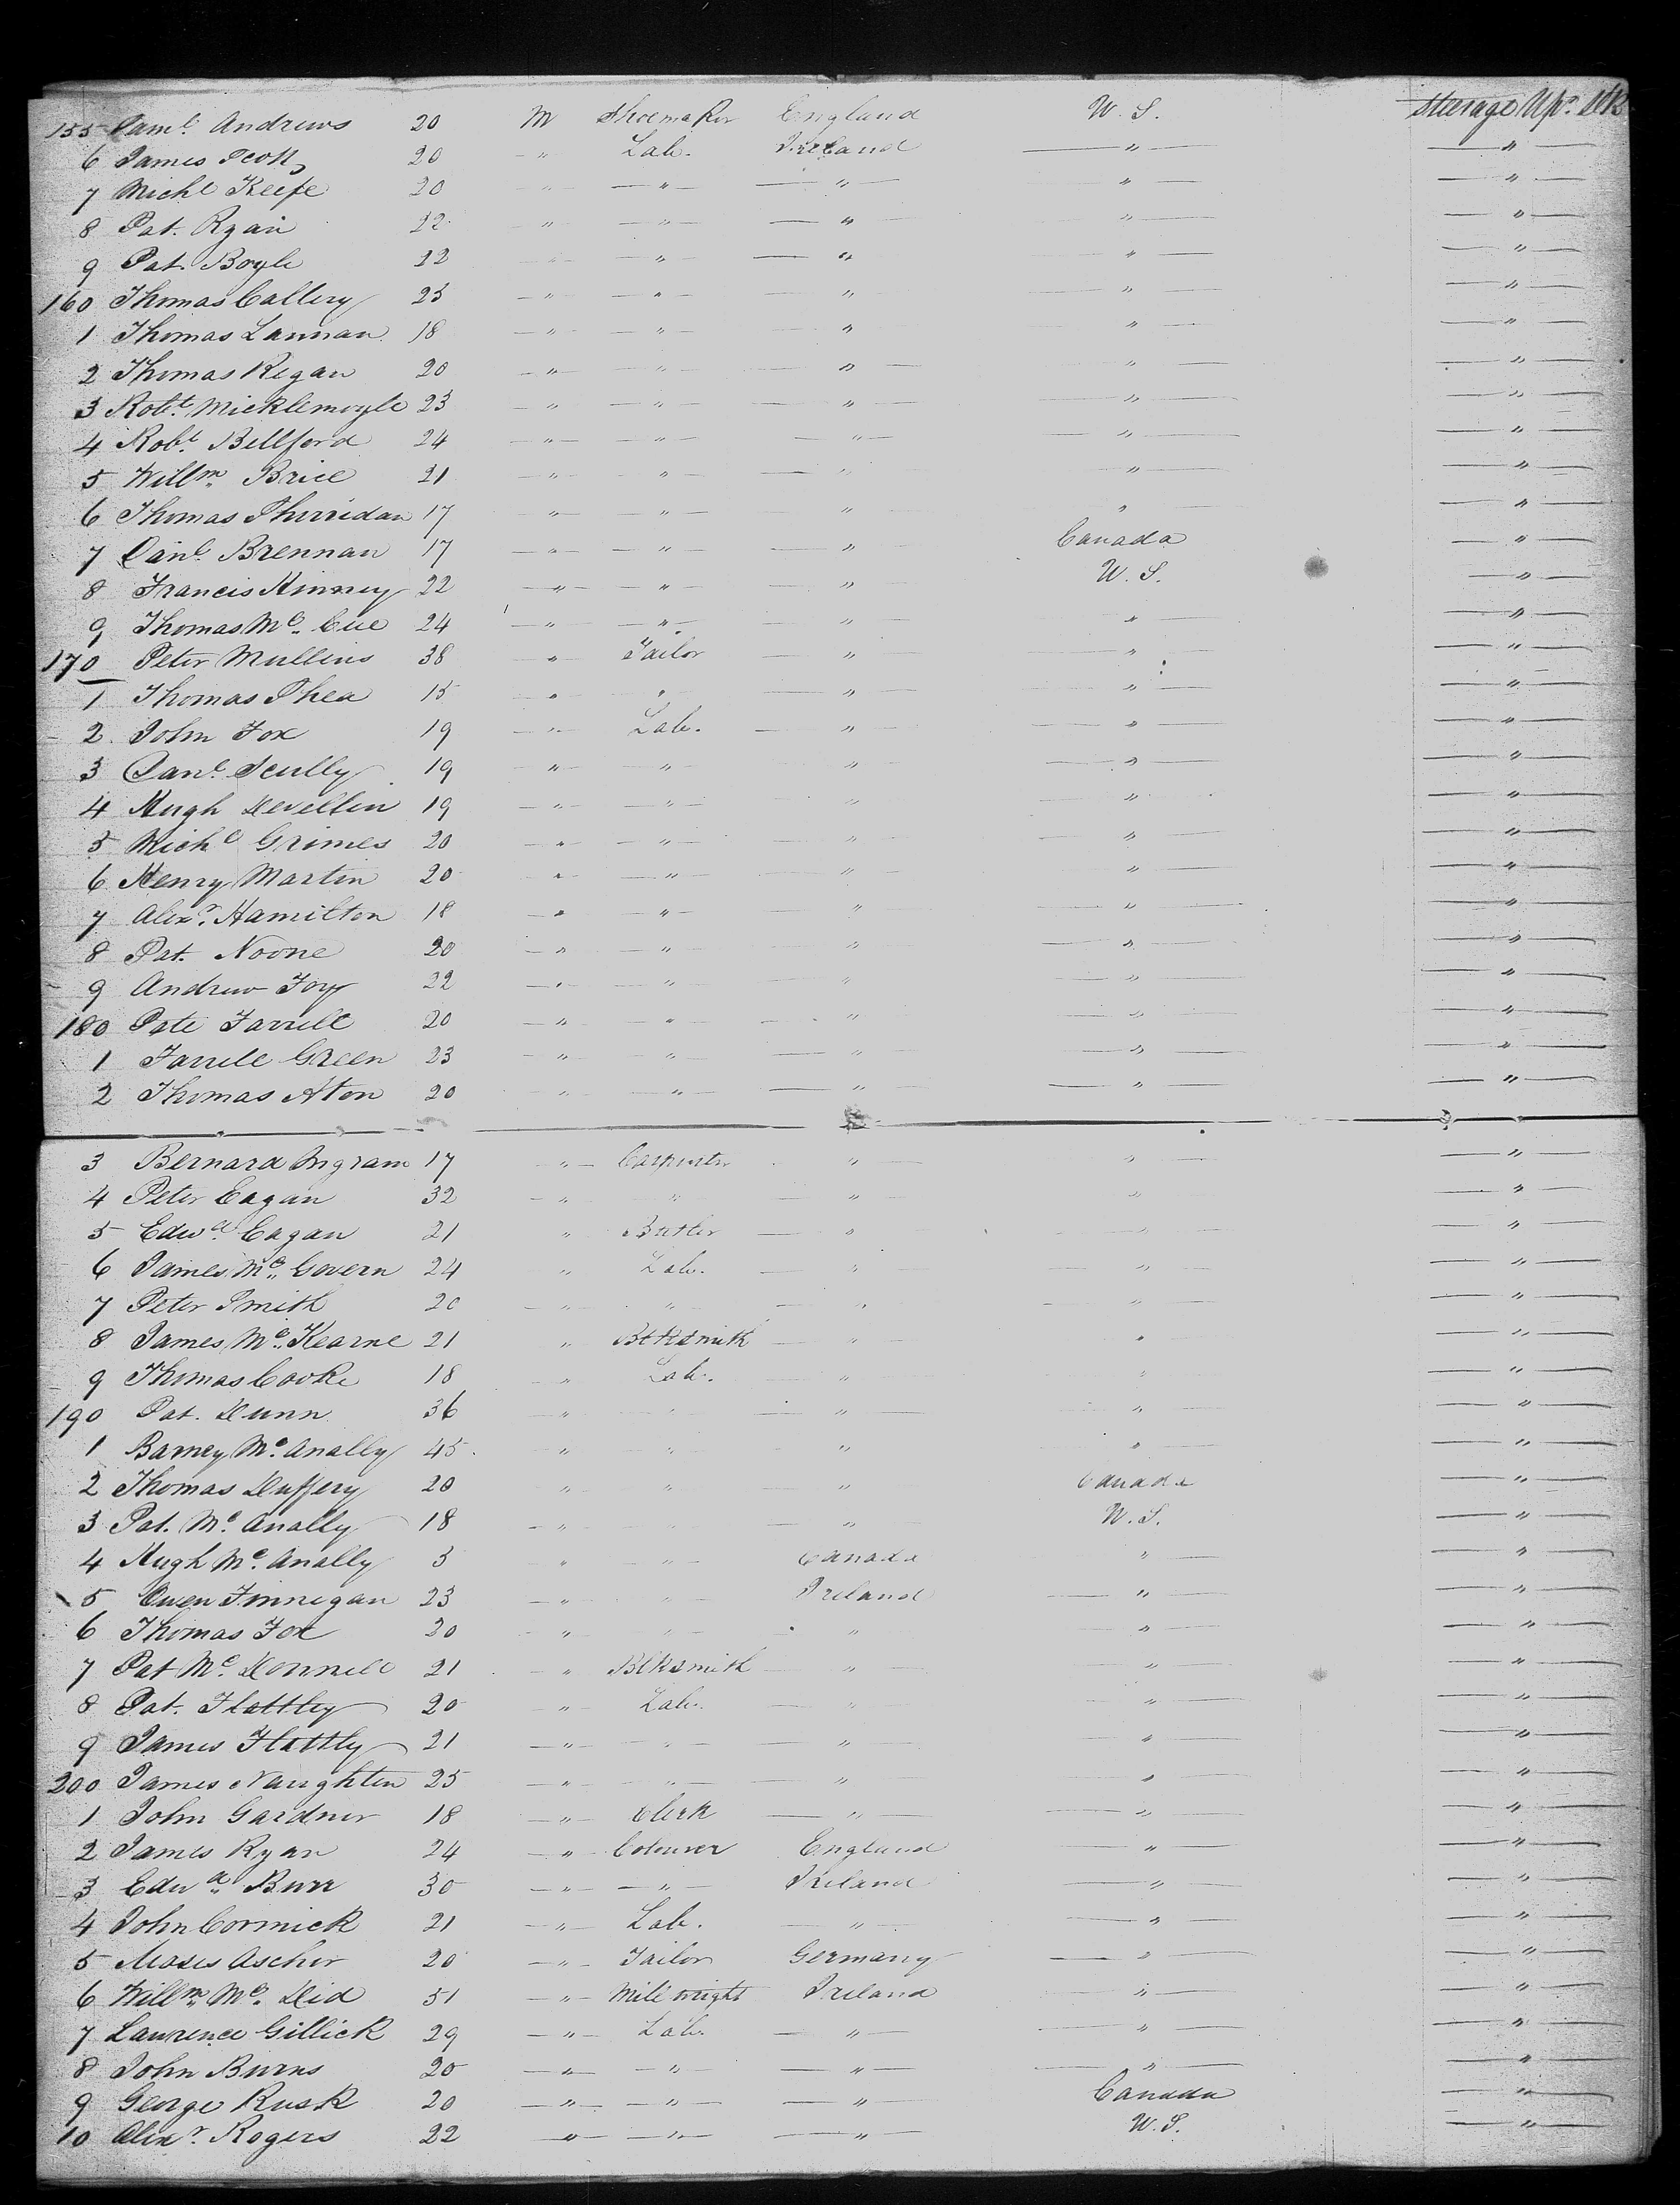 155 Saml. Andrews 20 M Shoemaker England U.S. Steerage Upr. DK
6 James Scott 20 " Lab. Ireland " "
7 Michl Keefe 20 " " " " "
8 Pat. Ryan 22 " " " " "
9 Pat. Boyle 22 " " " " "
160 Thomas Callery 25 " " " " "
1 Thomas Lannan 18 " " " " "
2 Thomas Regan 20 " " " " "
3 Robt. Micklemoyle 23 " " " " "
4 Robt Bellford 24 " " " " "
5 Willm. Brice 21 " " " " "
6 Thomas Sherridan 17 " " " " "
7 Danl. Brennan 17 " " " Canada "
8 Francis Kinney 22 " " " U.S. "
9 Thomas Mc. Cue 24 " " " " "
170 Peter Mullens 38 " Tailor " " "
1 Thomas Shea 15 " " " " "
2 John Fox 19 " Lab. " " "
3 Danl. Scully 19 " " " " "
4 Hugh Devellin 19 " " " " "
5 Michl Grimes 20 " " " " "
6 Henry Martin 20 " " " " "
7 Alexr. Hamilton 18 " " " " "
8 Pat. Noone 20 " " " " "
9 Andrew Foy 22 " " " " "
180 Pate Farrell 20 " " " " "
1 Farrell Green 23 " " " " "
2 Thomas Aton 20 " " " " "
3 Bernard Ingram 17 " Carpenter " " "
4 Peter Eagan 32 " " " " "
5 Edwd. Eagan 21 " Butler " " "
6 James Mc. Govern 24 " Lab. " " "
7 Peter Smith 20 " " " " "
8 James Mc. Kearne 21 " Blksmith " " "
9 Thomas Cooke 18 " Lab. " " "
190 Pat. Dunn 36 " " " " "
1 Barney Mc. Anally 45 " " " " "
2 Thomas Duffery 20 " " " Canada "
3 Pat. Mc. Anally 18 " " " U.S. "
4 Hugh Mc. Anally 3 " " Canada " "
5 Owen Finnegan 23 " " Ireland " "
6 Thomas Fox 20 " " " " "
7 Pat Mc. Donnell 21 " Blksmith " " "
8 Pat. Flattley 20 " Lab. " " "
9 James Flattly 21 " " " " "
200 James Naughten 25 " " " " "
1 John Gardner 18 " Clerk " " "
2 James Ryan 24 " Colourer England " "
3 Edwd. Burr 30 " " Ireland " "
4 John Cormick 21 " Lab. " " "
5 Moses Ascher 20 " Tailor Germany " "
6 Willm. Mc. Did 51 " Millwright Ireland " "
7 Lawrence Gillick 29 " Lab. " " "
8 John Burns 20 " " " " "
9 George Rusk 20 " " " Canada "
10 Alexr. Rogers 22 " " " U.S. "